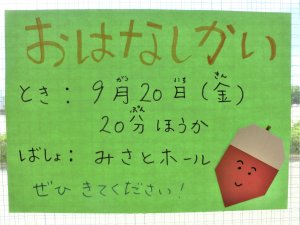 おはなしかい
がつ にち きん
とき： 9月20日（金）
ぷん
20分 ほうか
ばしょ： みさとホール
ぜひ きてください！